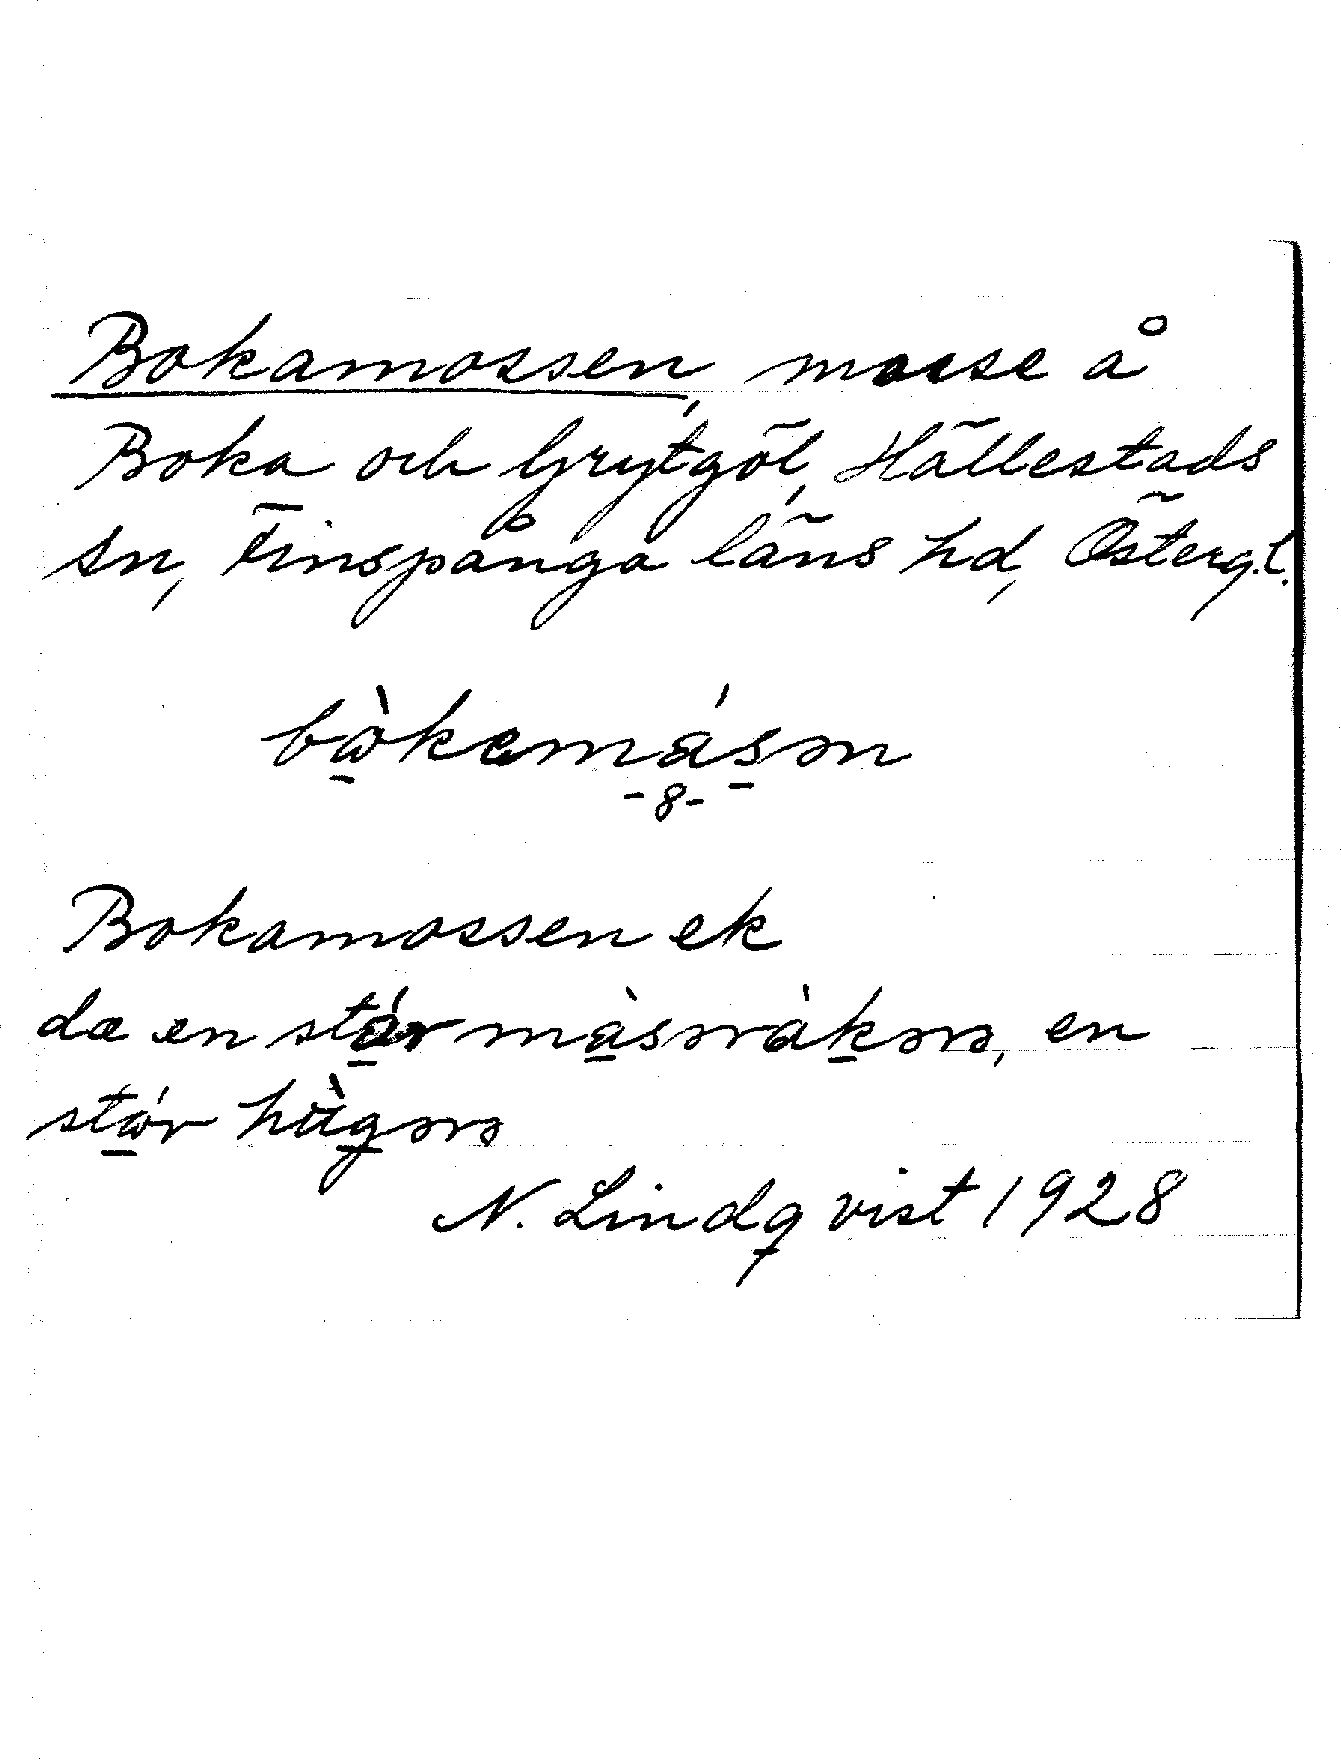 Bokamossen, mosse å
Boka och Grytgöl, Hällestads
sn, Finspånga läns hd, Östergl.
bὼkemåsən
-8-
Bokamossen ek
dæ en
en
N. Lindqvist 1928